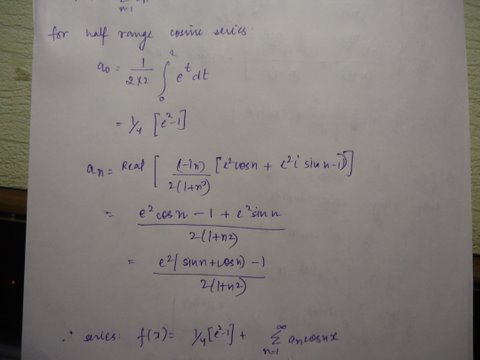 n=1
for half range cosine series
a₀ = 1/(2×2) ∫₀² eᵗ dt
= 1/4 [e²-1]
aₙ = Real [ (1-in)/(2(1+n²)) [e² cos n + e² i sin n - 1] ]
= (e² cos n - 1 + e² sin n)/(2(1+n²))
= (e²(sin n + cos n) - 1)/(2(1+n²))
∴ series: f(x) = 1/4 [e²-1] + ∑ₙ₌₁^∞ aₙ cos nx